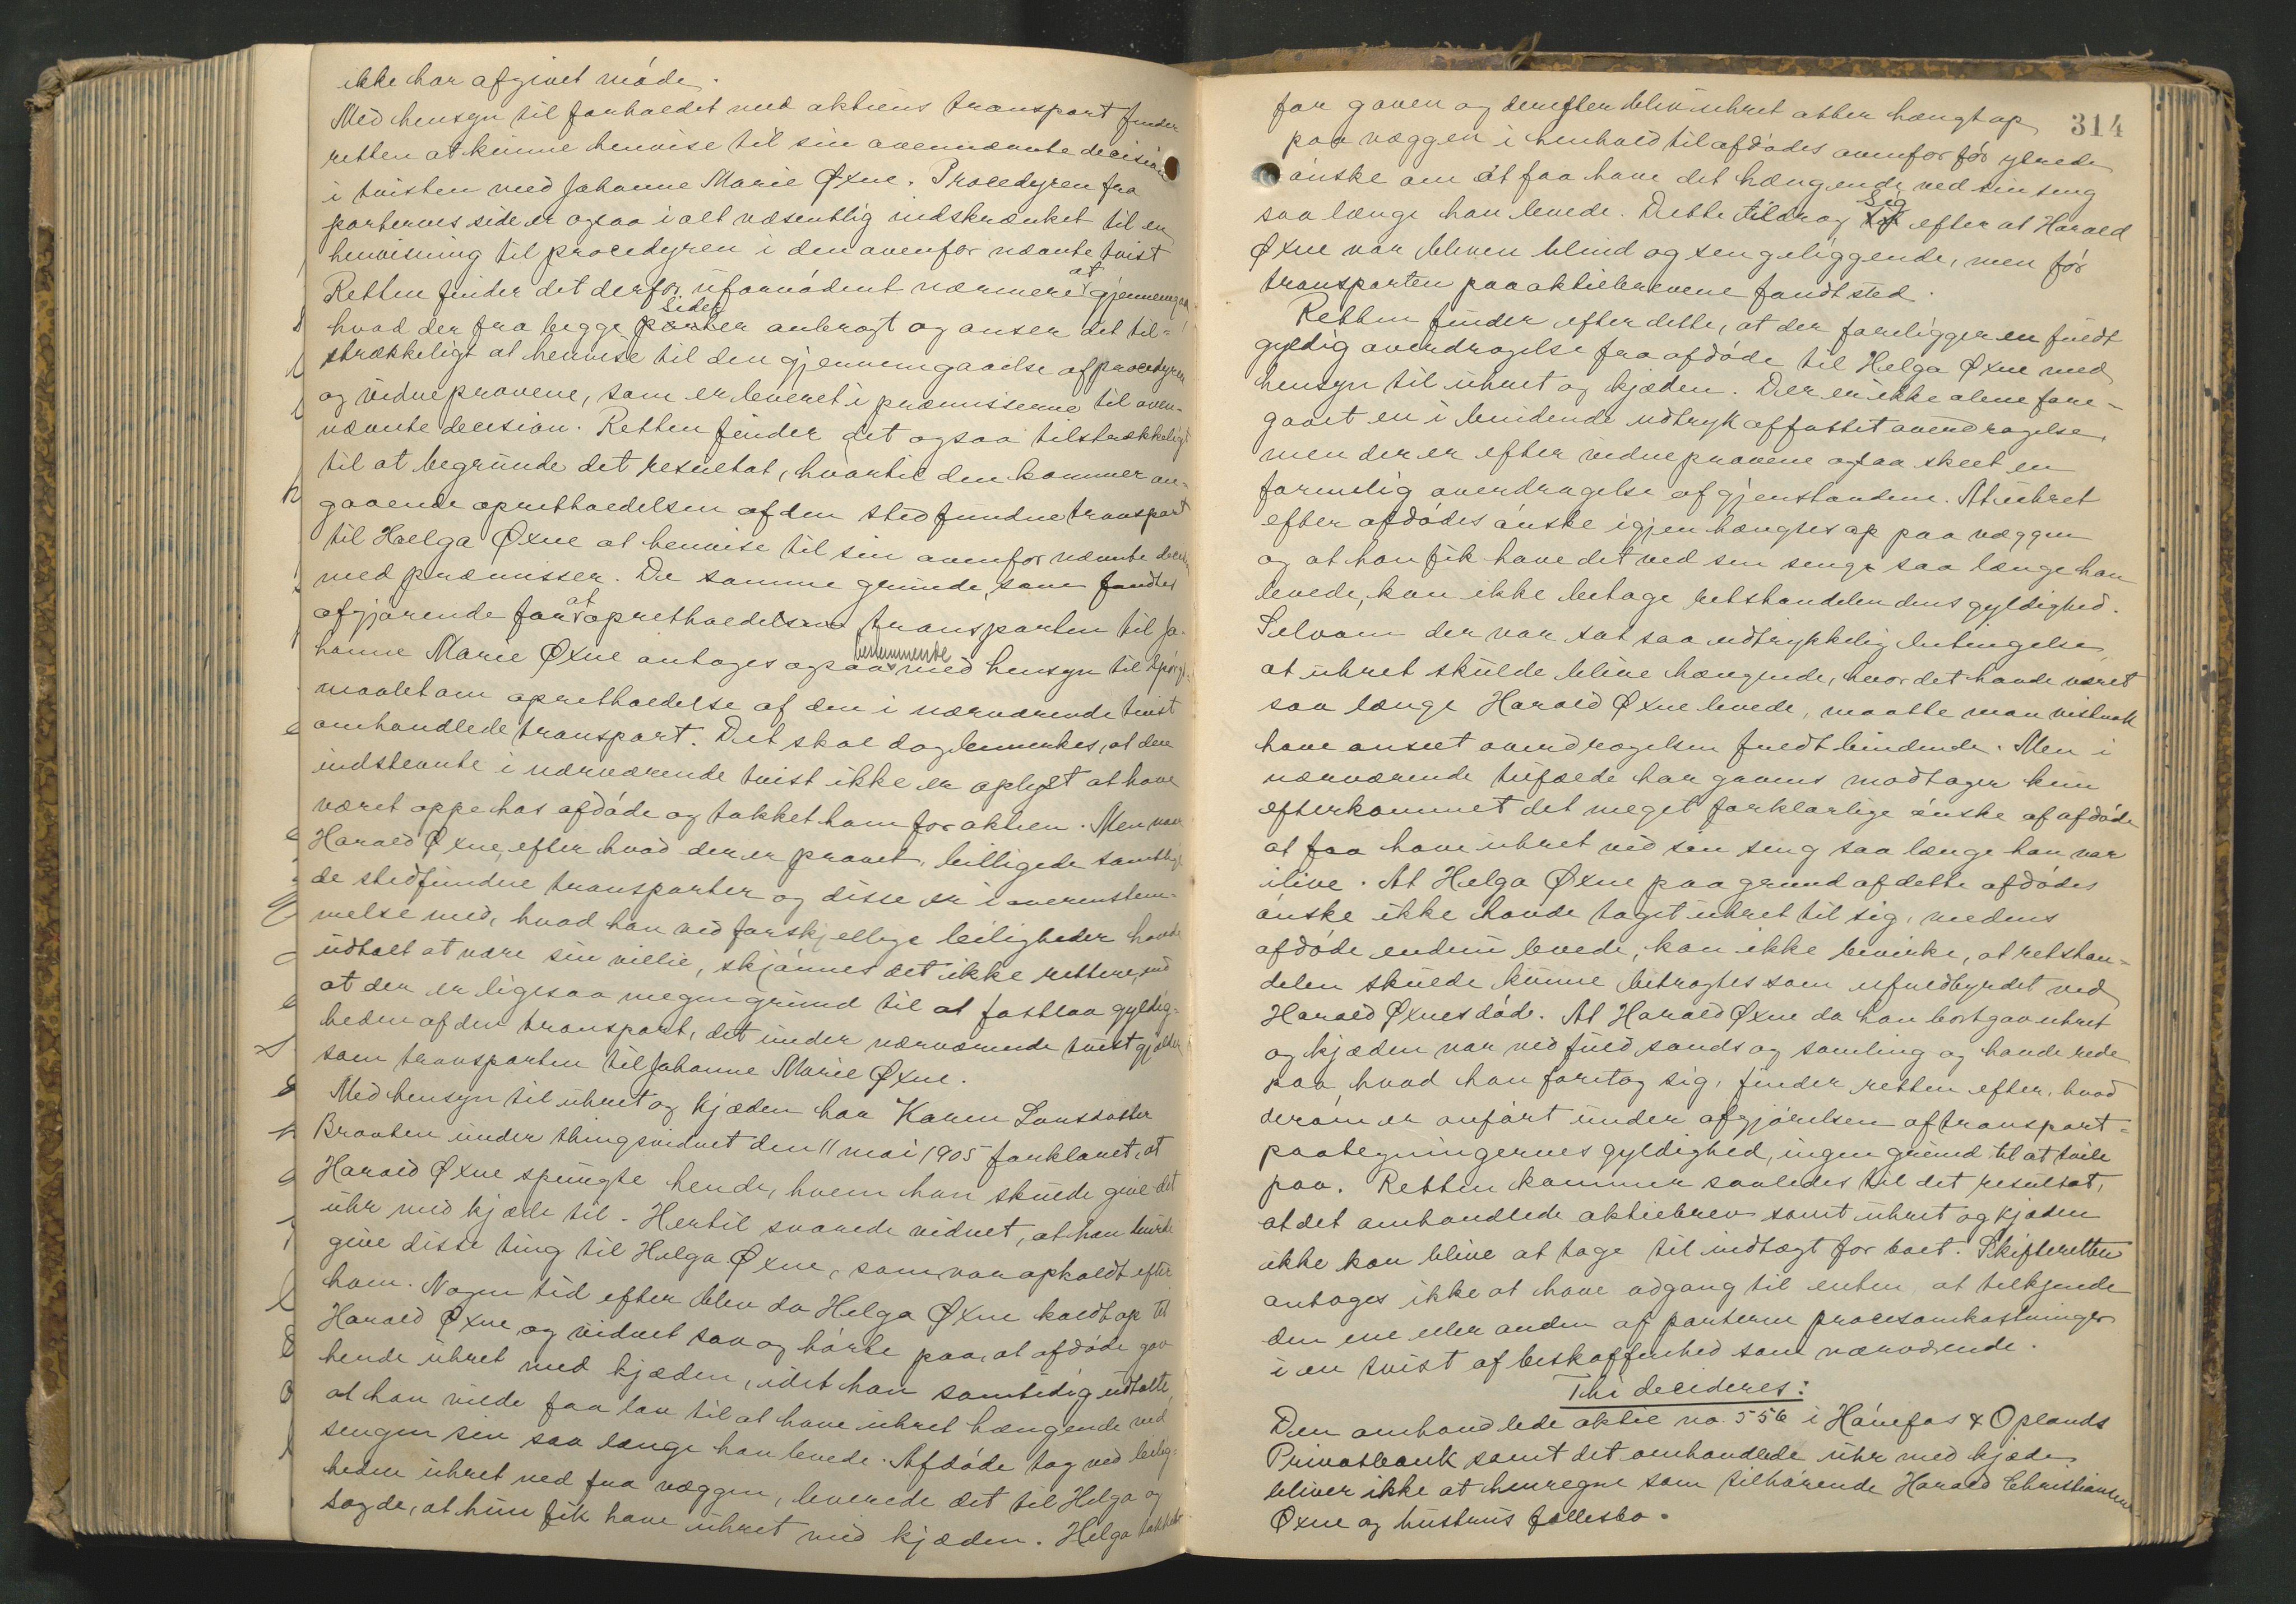 ikke har afgivet møde.
Med hensyn til forholdet med aktiens transport finder
retten at kunne henvise til sin ovennævnte decision
i tvisten med Johanne Marie Øxne. Procedyren fra
parternes side er ogsaa i alt væsentlig indskrænket til en
henvisning til procedyren i den ovenfor nævnte tvist
Retten finder det derfor ufornødent nærmere at gjennemgaa
hvad der fra begge sider anbragt og anser det til-
strækkeligt at henvise til den gjennemgaaelse af procedyren
og vidneprovene, som er leveret i præmisserne til oven-
nævnte decision. Retten finder det ogsaa tilstrækkeligt
til at begrunde det resultat, hvortil den kommer an-
gaaende opretholdelsen af den stedfundne transport
til Helga Øxne at henvise til sin ovenfor nævnte decision
med præmisser. De samme grunde, som fandtes
afgjørende for at opretholde transporten til Jo-
hanne Marie Øxne antages ogsaa bestemmende med hensyn til spørgs-
maalet om opretholdelse af den i nærværende tvist
omhandlede transport. Det skal dog bemerkes, at den
indstevnte i nærværende tvist ikke er oplyst at have
været oppe hos afdøde og takket ham for aktien. Men naar
Harald Øxne, efter hvad der er provet, billigede samtlige
de stedfundne transporter og disse er i overenstem-
melse med, hvad han ved forskjellige leiligheder havde
udtalt at være sin villie, skjønnes det ikke rettere, end
at der er ligesaa megen grund til at fastslaa gyldig-
heden af den transport, det under nærværende tvist gjælder
som transporten til Johanne Marie Øxne.
Med hensyn til uhret og kjæden har Karen Lovisdatter
Braaten under thingsvidnet den 11 mai 1905 forklaret, at
Harald Øxne spurgte hende, hvem han skulde give det
uhr med kjæde til. Hertil svarede vidnet, at han burde
give disse ting til Helga Øxne, som var opkaldt efter
ham. Nogen tid efter blev da Helga Øxne kaldt op til
Harald Øxne og vidnet saa og hørte paa, at afdøde gav
hende uhret med kjæden, idet han samtidig udtalte,
at han vilde faa lov til at have uhret hængende ved
sengen sin saa længe han levede. Afdøde tog ved leilig-
heden uhret ned fra væggen, leverede det til Helga og
sagde, at hun fik have uhret med kjæden. Helga takket
314
for gaven og derefter blev uhret atter hængt op
paa væggen i henhold til afdødes ovenfor før ytrede
ønske om at faa have det hængende ved sin seng
saa længe han levede. Dette tildrog sig efter at Harald
Øxne var bleven blind og sengeliggende, men før
transporten paa aktiebrevene fandt sted.
Retten finder efter dette, at der foreligger en fuldt
gyldig overdragelse fra afdøde til Helga Øxne med
hensyn til uhret og kjæden. Der er ikke alene fore-
gaaet en i bindende udtryk affattet overdragelse,
men der er efter vidneprovene ogsaa skeet en
formelig overdragelse af gjenstandene. At uhret
efter afdødes ønske igjen hængtes op paa væggen
og at han fik have det ved sin senge saa længe han
levede, kan ikke betage retshandelen dens gyldighed.
Selvom der var sat saa udtrykkelig betingelse,
at uhret skulde blive hængende, hvor det havde været
saa længe Harald Øxne levede, maatte man vistnok
have anseet overdragelsen fuldt bindende. Men i
nærværende tilfælde har gavens modtager kun
efterkommet det meget forklarlige ønske af afdøde
at faa have uhret ved sin seng saa længe han var
ilive. At Helga Øxne paa grund af dette afdødes
ønske ikke havde taget uhret til sig, medens
afdøde endnu levede, kan ikke bevirke, at retshan-
delen skulde kunne betragtes som ufuldbyrdet ved
Harald Øxnes død. At Harald Øxne da han bortgav uhret
og kjæden var ved fuld sands og samling og havde rede
paa hvad han foretog sig, finder retten efter, hvad
derom er anført under afgjørelsen af transport-
paategningernes gyldighed, ingen grund til at tvile
paa. Retten kommer saaledes til det resultat,
at det omhandlede aktiebrev samt uhret og kjæden
ikke kan blive at tage til indtægt for boet. Skifteretten
antages ikke at have adgang til enten at tilkjende
den ene eller anden af parterne procesomkostninger
i en tvist af beskaffenhed som nærværende.
Thi decideres:
Den omhandlede aktie no. 556 i Hønefos & Oplands
Privatbank samt det omhandlede uhr med kjæde
bliver ikke at henregne som tilhørende Harald Christiansen
Øxne og hustrus fællesbo.